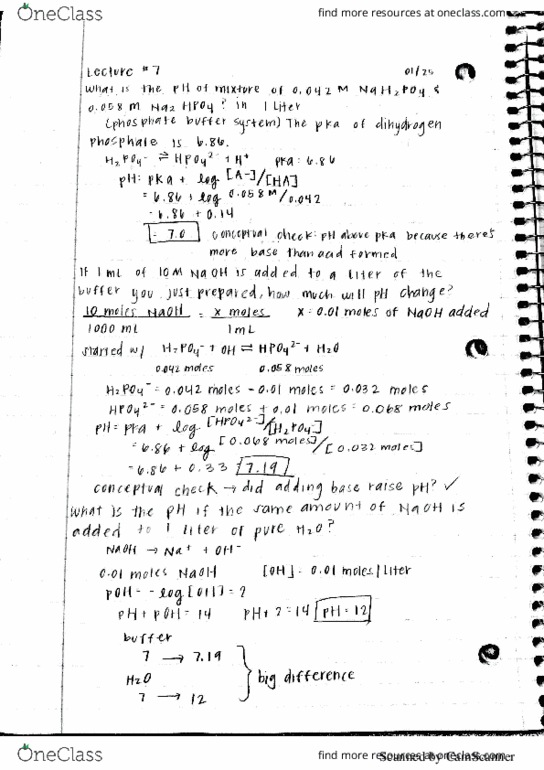 OneClass find more resources at oneclass.com
Lecture #7 01/25
What is the pH of mixture of 0.042 M NaH₂PO₄ &
0.058 M Na₂ HPO₄? in 1 Liter
(phosphate buffer system) The pka of dihydrogen
phosphate is 6.86.
H₂PO₄⁻ ⇌ HPO₄²⁻ + H⁺ pka: 6.86
pH: pka + log [A-]/[HA]
= 6.86 + log 0.058 M/0.042
= 6.86 + 0.14
= 7.0 conceptual check: pH above pka because there's
more base than acid formed
If 1 mL of 10M NaOH is added to a liter of the
buffer you just prepared, how much will pH change?
10 moles NaOH = x moles X = 0.01 moles of NaOH added
1000 mL 1mL
started w/ H₂PO₄⁻ + OH ⇌ HPO₄²⁻ + H₂O
0.042 moles 0.058 moles
H₂PO₄⁻ = 0.042 moles - 0.01 moles = 0.032 moles
HPO₄²⁻ = 0.058 moles + 0.01 moles = 0.068 moles
pH = pka + log [HPO₄²⁻]/[H₂PO₄⁻]
= 6.86 + log [0.068 moles]/[0.032 moles]
= 6.86 + 0.33 7.19
conceptual check → did adding base raise pH? ✓
What is the pH if the same amount of NaOH is
added to 1 liter of pure H₂O?
NaOH → Na⁺ + OH⁻
0.01 moles NaOH [OH]: 0.01 moles/liter
pOH = -log[OH] = 2
pH + pOH = 14 pH + 2 = 14 pH = 12
buffer
7 → 7.19
H₂O big difference
7 → 12
OneClass find more resources at oneclass.com
Scanned by CamScanner